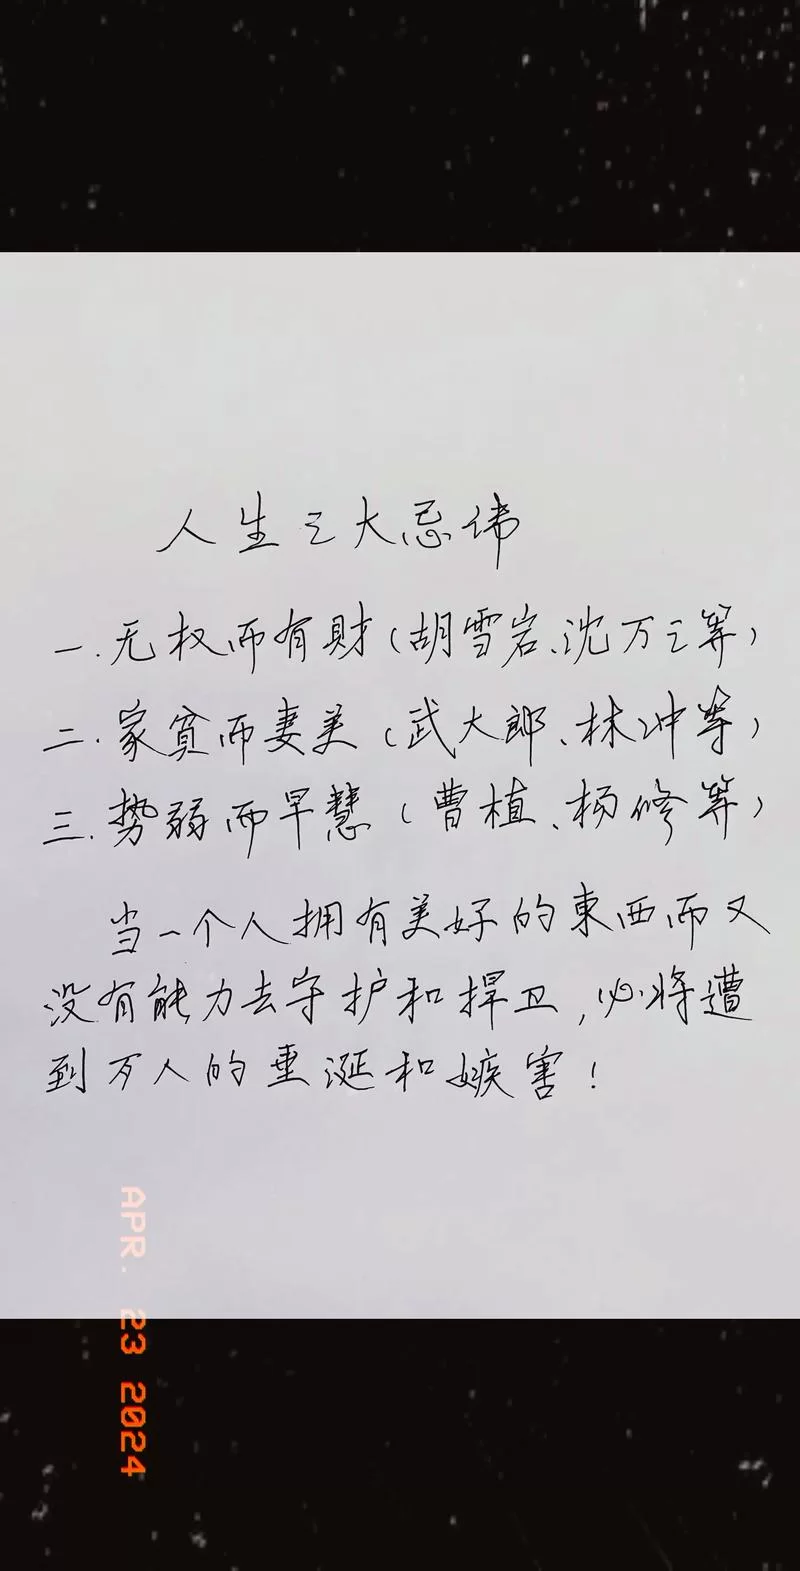 人生三大忌讳
一.无权而有財(胡雪岩、沈万三等)
二.家貧而妻美(武大郎、林冲等)
三.势弱而早慧(曹植、杨修等)
当一个人拥有美好的東西而又
没有能力去守护和捍卫,必将遭
到歹人的垂涎和嫉害!
APR. 23 2024